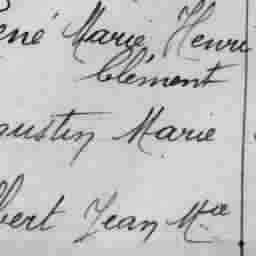 ené Marie Henri
Clément
gustin Marie
bert Jean Mie